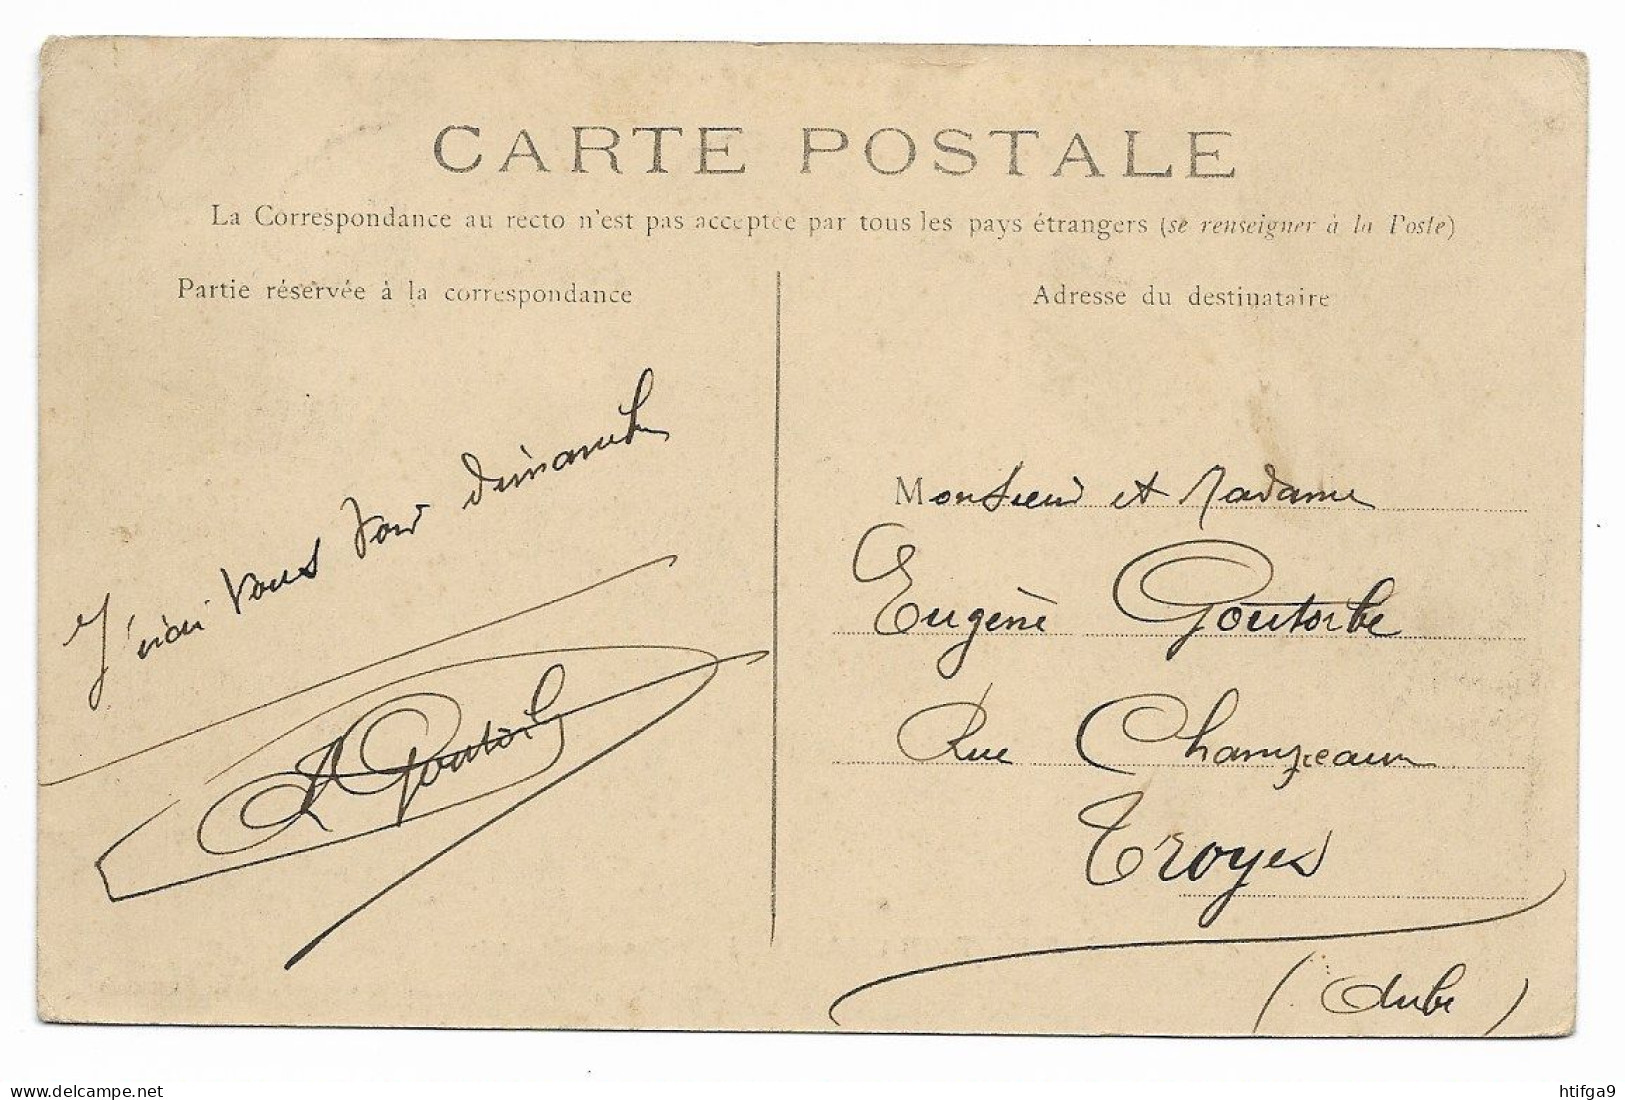 CARTE POSTALE
La Correspondance au recto n'est pas acceptée par tous les pays étrangers (se renseigner à la Poste)
Partie réservée à la correspondance
J'irai vous voir dimanche
Goutorbe
Adresse du destinataire
Monsieur et Madame
Eugène Goutorbe
Rue Champeaux
Troyes
(Aube)
delcampe.net
htifga9